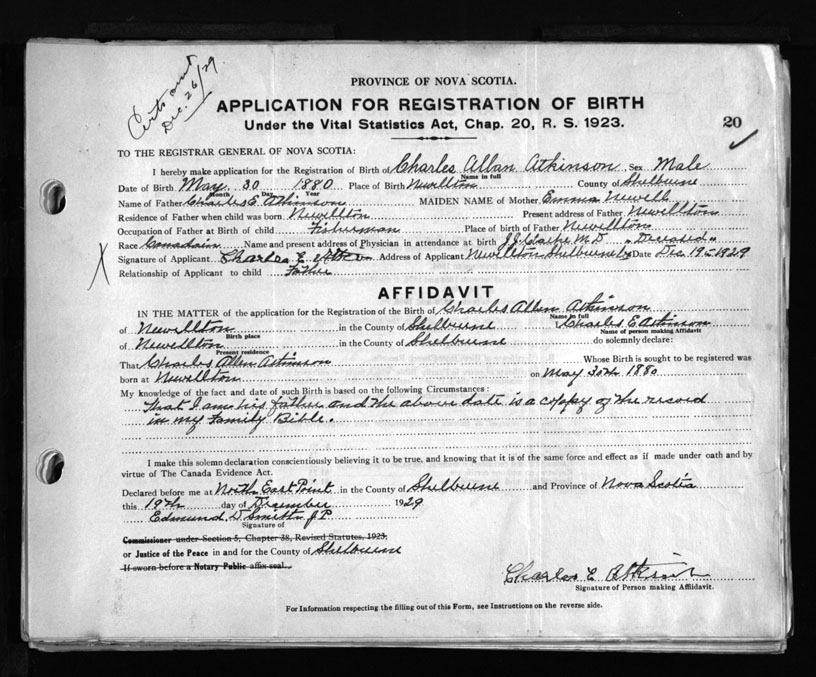 Certs sent
Dec. 26/29
PROVINCE OF NOVA SCOTIA.
APPLICATION FOR REGISTRATION OF BIRTH
Under the Vital Statistics Act, Chap. 20, R. S. 1923.
20
TO THE REGISTRAR GENERAL OF NOVA SCOTIA:
I hereby make application for the Registration of Birth of Charles Allan Atkinson Sex Male
Name in full
Date of Birth May 30 1880 Place of Birth Newellton County of Shelburne
Month Day Year
Name of Father Charles E. Atkinson MAIDEN NAME of Mother Emma Newell
Residence of Father when child was born Newellton Present address of Father Newellton
Occupation of Father at Birth of child Fisherman Place of birth of Father Newellton
Race Canadain Name and present address of Physician in attendance at birth J.J. Clarke M.D "Deceased"
Signature of Applicant Charles E Address of Applicant Newellton Shelburne Date Dec 19 1929
Relationship of Applicant to child Father
X
AFFIDAVIT
IN THE MATTER of the application for the Registration of the Birth of Charles Allan Atkinson
Name in full
of Newellton in the County of Shelburne Charles E Atkinson
Birth place Name of person making Affidavit
of Newellton in the County of Shelburne do solemnly declare:
Present residence
That Charles Allen Atkinson Whose Birth is sought to be registered was
born at Newellton on May 30th 1880
My knowledge of the fact and date of such Birth is based on the following Circumstances:
That I am his father and the above date is a copy of the record
in my Family Bible.
I make this solemn declaration conscientiously believing it to be true, and knowing that it is of the same force and effect as if made under oath and by
virtue of The Canada Evidence Act.
Declared before me at North East Point in the County of Shelburne and Province of Nova Scotia
this 19th day of December 1929
Edmund D Smith J P
Signature of
Commissioner under Section 5, Chapter 38, Revised Statutes, 1923,
or Justice of the Peace in and for the County of Shelburne
If sworn before a Notary Public affix seal.
Charles E Atkinson
Signature of Person making Affidavit.
For Information respecting the filling out of this Form, see Instructions on the reverse side.